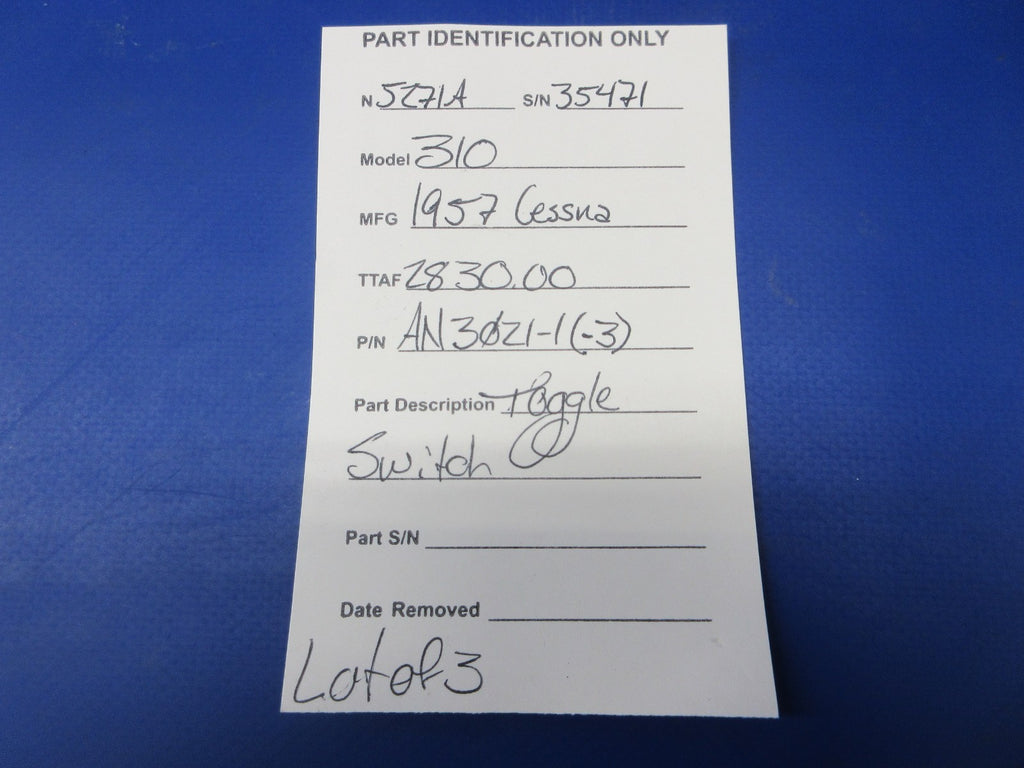 PART IDENTIFICATION ONLY
N 5271A S/N 35471
Model 310
MFG 1957 Cessna
TTAF 2830.00
P/N AN3021-1(-3)
Part Description Toggle
Switch
Part S/N
Date Removed
Lot of 3